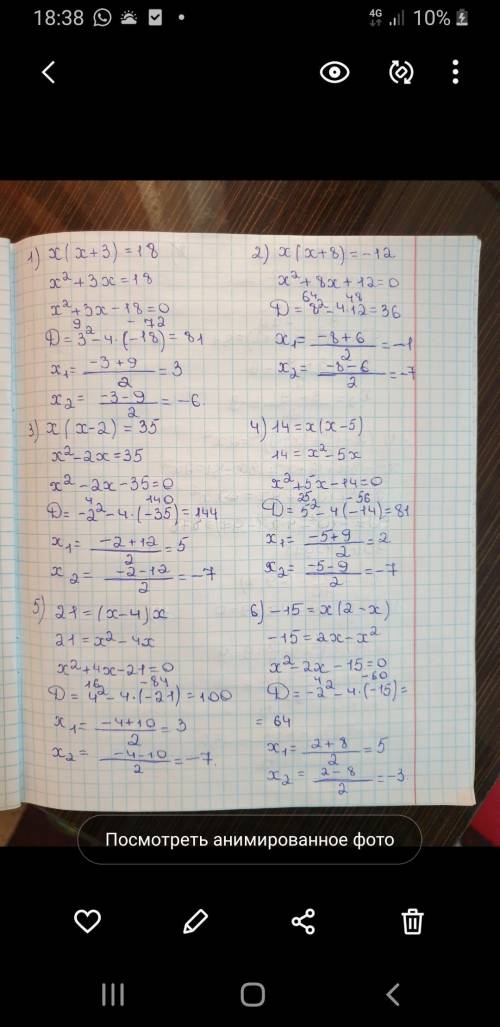 18:38 4G 10%
1) x(x+3)=18
x²+3x=18
x²+3x-18=0
9 -72
D=3²-4·(-18)=81
x₁= -3+9/2 =3
x₂= -3-9/2 =-6.
2) x(x+8)=-12
x²+8x+12=0
64 48
D=8²-4·12=36
x₁= -8+6/2 =-1
x₂= -8-6/2 =-7
3) x(x-2)=35
x²-2x=35
x²-2x-35=0
4 140
D=-2²-4·(-35)=144
x₁= -2+12/2 =5
x₂= -2-12/2 =-7
4) 14=x(x-5)
14=x²-5x
x²+5x-14=0
25 -56
D=5²-4(-14)=81
x₁= -5+9/2 =2
x₂= -5-9/2 =-7
5) 21=(x-4)x
21=x²-4x
x²+4x-21=0
16 -84
D=4²-4·(-21)=100
x₁= -4+10/2 =3
x₂= -4-10/2 =-7.
6) -15=x(2-x)
-15=2x-x²
x²-2x-15=0
4 -60
D=-2²-4·(-15)=
=64
x₁= 2+8/2 =5
x₂= 2-8/2 =-3
Посмотреть анимированное фото